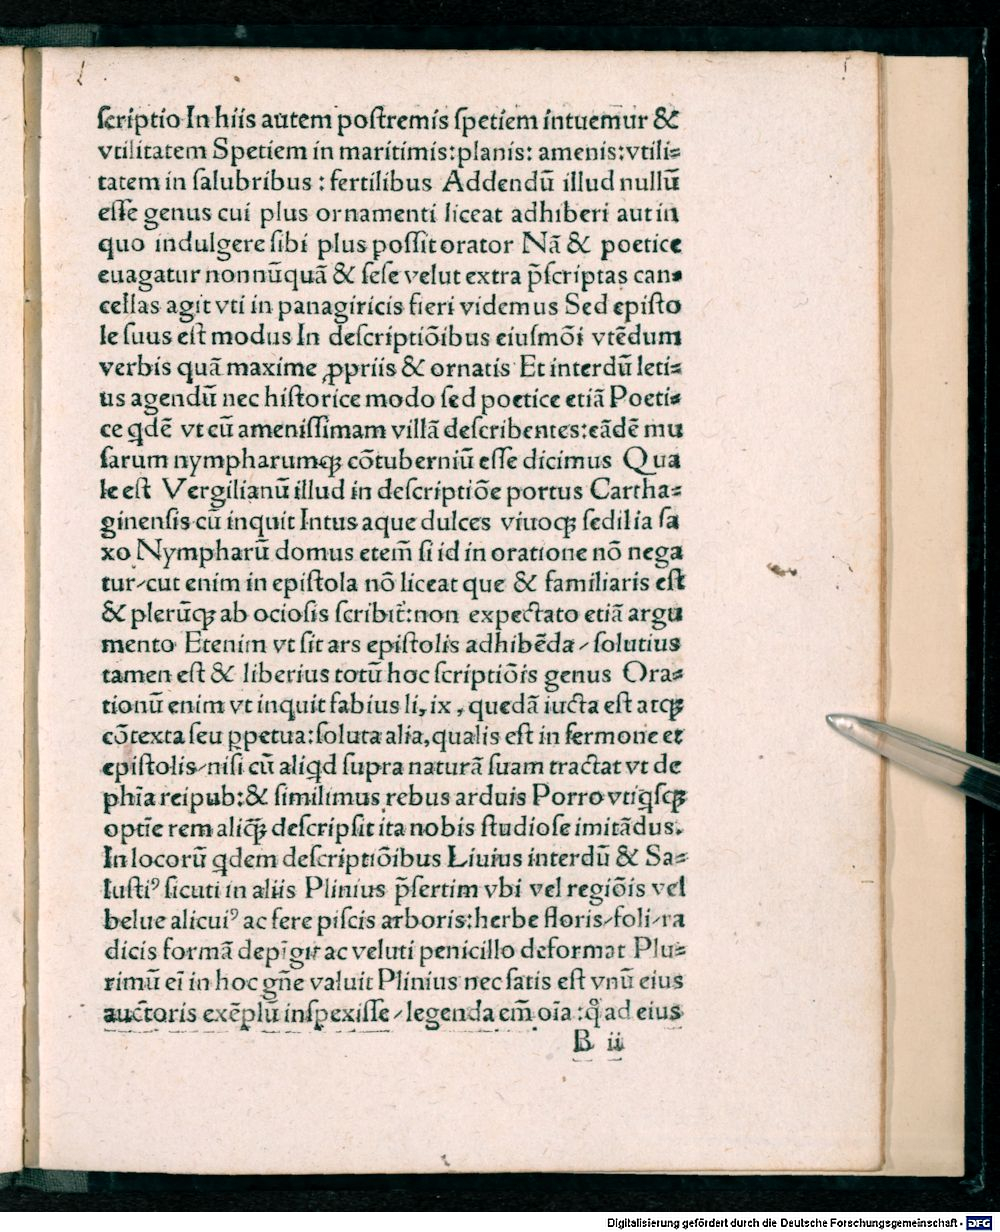 scriptio In hiis autem postremis spetiem intuemur &
vtilitatem Spetiem in maritimis:planis: amenis:vtili⸗
tatem in salubribus : fertilibus Addendū illud nullū
esse genus cui plus ornamenti liceat adhiberi aut in
quo indulgere sibi plus possit orator Nā & poetice
euagatur nonnūquā & sese velut extra p̄scriptas can⸗
cellas agit vti in panagiricis fieri videmus Sed episto
le suus est modus In descriptiōibus eiusmōi vtēdum
verbis quā maxime ꝓpriis & ornatis Et interdū leti⸗
us agendū nec historice modo sed poetice etiā Poeti⸗
ce qdē vt cū amenissimam villā describentes:eādē mu
sarum nympharumqꝫ cōtuberniū esse dicimus Qua
le est Vergilianū illud in descriptiōe portus Cartha⸗
ginensis cū inquit Intus aque dulces viuoqꝫ sedilia sa
xo Nympharū domus etem̄ si id in oratione nō nega
tur/cut enim in epistola nō liceat que & familiaris est
& plerūqꝫ ab ociosis scribit̄:non expectato etiā argu
mento Etenim vt sit ars epistolis adhibēda/solutius
tamen est & liberius totū hoc scriptiōis genus Ora⸗
tionū enim vt inquit fabius li, ix, quedā iucta est atqꝫ
cōtexta seu ꝑpetua:soluta alia,qualis est in sermone et
epistolis/nisi cū aliqd supra naturā suam tractat vt de
phīa reipub:& similimus rebus arduis Porro vti qsqꝫ
optīe rem aliqꝫ̄ descripsit ita nobis studiose imitādus.
In locorū qdem descriptiōibus Liuius interdū & Sa⸗
lustiꝰ sicuti in aliis Plinius p̄sertim vbi vel regiōis vel
belue alicuiꝰ ac fere piscis arboris:herbe floris/foli/ra
dicis formā depīgit ac veluti penicillo deformat Plu⸗
rimū ei in hoc gn̄e valuit Plinius nec satis est vnū eius
auctoris exēplū inspexisse/legenda em̄ oīa:q̊ ad eius
B ii
Digitalisierung gefördert durch die Deutsche Forschungsgemeinschaft - DFG